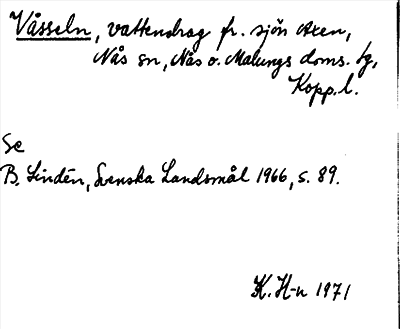 Våsseln, vattendrag fr. sjön Axen,
Nås sn, Nås o. Malungs doms. fg,
Kopp. l.
Se
B. Lindén, Svenska Landsmål 1966, s. 89.
K. H-n 1971